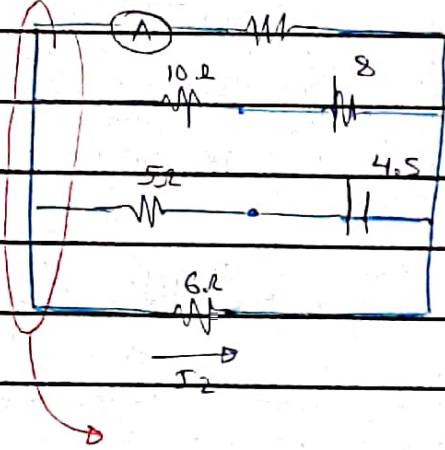 A
10 Ω 8
5Ω 4.5
6Ω
I2